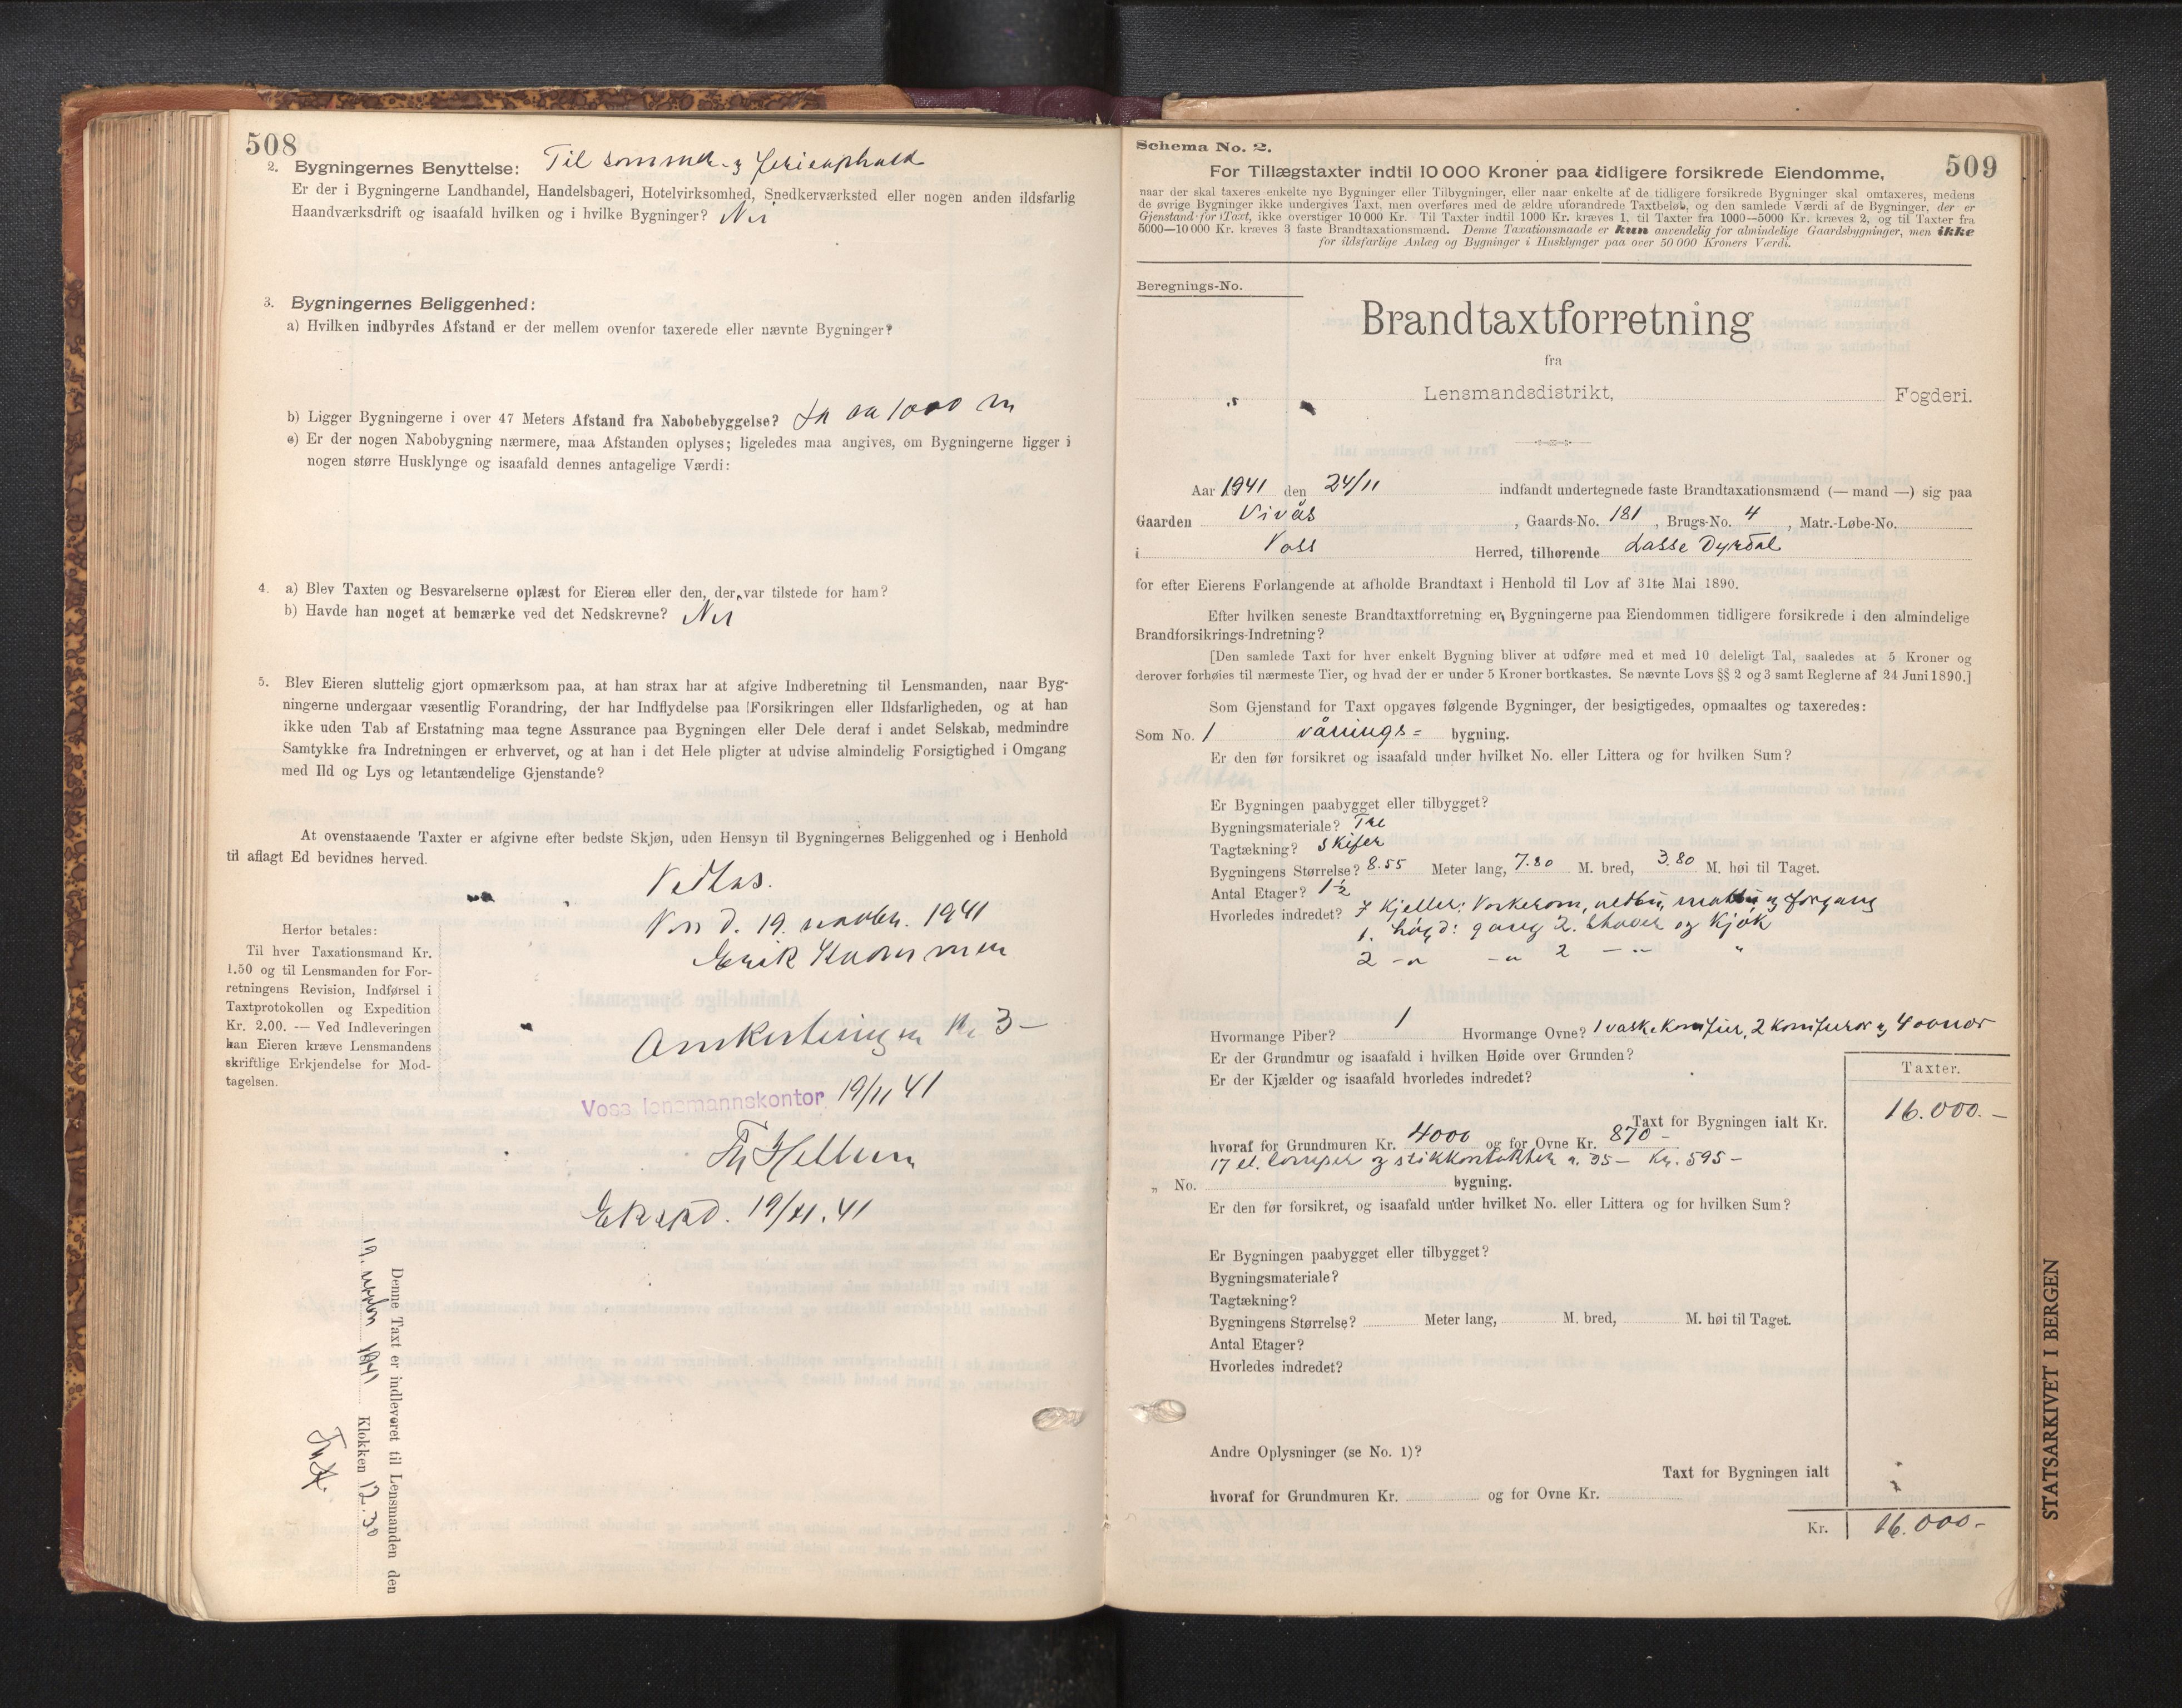 508
2. Bygningernes Benyttelse: Til sommer- og ferieophold
Er der i Bygningerne Landhandel, Handelsbageri, Hotelvirksomhed, Snedkerværksted eller nogen anden ildsfarlig
Haandværksdrift og isaafald hvilken og i hvilke Bygninger? Nei
3. Bygningernes Beliggenhed:
a) Hvilken indbyrdes Afstand er der mellem ovenfor taxerede eller nævnte Bygninger?
b) Ligger Bygningerne i over 47 Meters Afstand fra Nabobebyggelse? Ja ca 1000 m
c) Er der nogen Nabobygning nærmere, maa Afstanden oplyses; ligeledes maa angives, om Bygningerne ligger i
nogen større Husklynge og isaafald dennes antagelige Værdi:
4. a) Blev Taxten og Besvarelserne oplæst for Eieren eller den, der var tilstede for ham?
b) Havde han noget at bemærke ved det Nedskrevne? Nei
5. Blev Eieren sluttelig gjort opmærksom paa, at han strax har at afgive Indberetning til Lensmanden, naar Byg-
ningerne undergaar væsentlig Forandring, der har Indflydelse paa Forsikringen eller Ildsfarligheden, og at han
ikke uden Tab af Erstatning maa tegne Assurance paa Bygningen eller Dele deraf i andet Selskab, medmindre
Samtykke fra Indretningen er erhvervet, og at han i det Hele pligter at udvise almindelig Forsigtighed i Omgang
med Ild og Lys og letantændelige Gjenstande?
At ovenstaaende Taxter er afgivne efter bedste Skjøn, uden Hensyn til Bygningernes Beliggenhed og i Henhold
til aflagt Ed bevidnes herved.
Voss d. 19. novbr. 1941
Erik
Herfor betales:
Til hver Taxationsmand Kr.
1.50 og til Lensmanden for For-
retningens Revision, Indførsel i
Taxtprotokollen og Expedition
Kr. 2.00. — Ved Indleveringen
kan Eieren kræve Lensmandens
skriftlige Erkjendelse for Mod-
tagelsen.
Omkostningen kr. 3-
Voss lensmannskontor 19/11 41
Eksped. 19/11.41
Denne Taxt er indleveret til Lensmanden den
19. novbr 1941 Klokken 12.30
Schema No. 2.
509
For Tillægstaxter indtil 10 000 Kroner paa tidligere forsikrede Eiendomme,
naar der skal taxeres enkelte nye Bygninger eller Tilbygninger, eller naar enkelte af de tidligere forsikrede Bygninger skal omtaxeres, medens
de øvrige Bygninger ikke undergives Taxt, men overføres med de ældre uforandrede Taxtbeløb, og den samlede Værdi af de Bygninger, der er
Gjenstand for Taxt, ikke overstiger 10 000 Kr. Til Taxter indtil 1000 Kr. kræves 1, til Taxter fra 1000—5000 Kr. kræves 2, og til Taxter fra
5000—10 000 Kr. kræves 3 faste Brandtaxationsmænd. Denne Taxationsmaade er kun anvendelig for almindelige Gaardsbygninger, men ikke
for ildsfarlige Anlæg og Bygninger i Husklynger paa over 50 000 Kroners Værdi.
Beregnings-No.
Brandtaxtforretning
fra
Lensmandsdistrikt, Fogderi.
Aar 1941 den 24/11 indfandt undertegnede faste Brandtaxationsmænd (— mand —) sig paa
Gaarden Vivås, Gaards-No. 181, Brugs-No. 4, Matr.-Løbe-No.
i Voss Herred, tilhørende Lasse Dyrdal
for efter Eierens Forlangende at afholde Brandtaxt i Henhold til Lov af 31te Mai 1890.
Efter hvilken seneste Brandtaxtforretning er Bygningerne paa Eiendommen tidligere forsikrede i den almindelige
Brandforsikrings-Indretning?
[Den samlede Taxt for hver enkelt Bygning bliver at udføre med et med 10 deleligt Tal, saaledes at 5 Kroner og
derover forhøies til nærmeste Tier, og hvad der er under 5 Kroner bortkastes. Se nævnte Lovs §§ 2 og 3 samt Reglerne af 24 Juni 1890.]
Som Gjenstand for Taxt opgaves følgende Bygninger, der besigtigedes, opmaaltes og taxeredes:
Som No. 1 vånings= bygning.
Er den før forsikret og isaafald under hvilket No. eller Littera og for hvilken Sum?
Er Bygningen paabygget eller tilbygget?
Bygningsmateriale? Tre
Tagtækning? Skifer
Bygningens Størrelse? 8.55 Meter lang, 7.80 M. bred, 3.80 M. høi til Taget.
Antal Etager? 1½
Hvorledes indredet? I Kjeller: Vaskerom, vedbu, matbu og forgang
1. høgd: gang 2. stover og kjøk
2 -"- -"- 2 -"- "
Hvormange Piber? 1 Hvormange Ovne? 1 vaskekomfur, 2 komfurer og 4 ovner
Er der Grundmur og isaafald i hvilken Høide over Grunden?
Er der Kjælder og isaafald hvorledes indredet?
Taxter.
Taxt for Bygningen ialt Kr. 16.000.-
hvoraf for Grundmuren Kr. 4000 og for Ovne Kr. 870-
17 el. lamper og stikkontakter a. 35- Kr. 595-
„ No. bygning.
Er den før forsikret, og isaafald under hvilket No. eller Littera og for hvilken Sum?
Er Bygningen paabygget eller tilbygget?
Bygningsmateriale?
Tagtækning?
Bygningens Størrelse? Meter lang, M. bred, M. høi til Taget.
Antal Etager?
Hvorledes indredet?
Andre Oplysninger (se No. 1)?
Taxt for Bygningen ialt
hvoraf for Grundmuren Kr. og for Ovne Kr.
Kr. 16.000-
STATSARKIVET I BERGEN